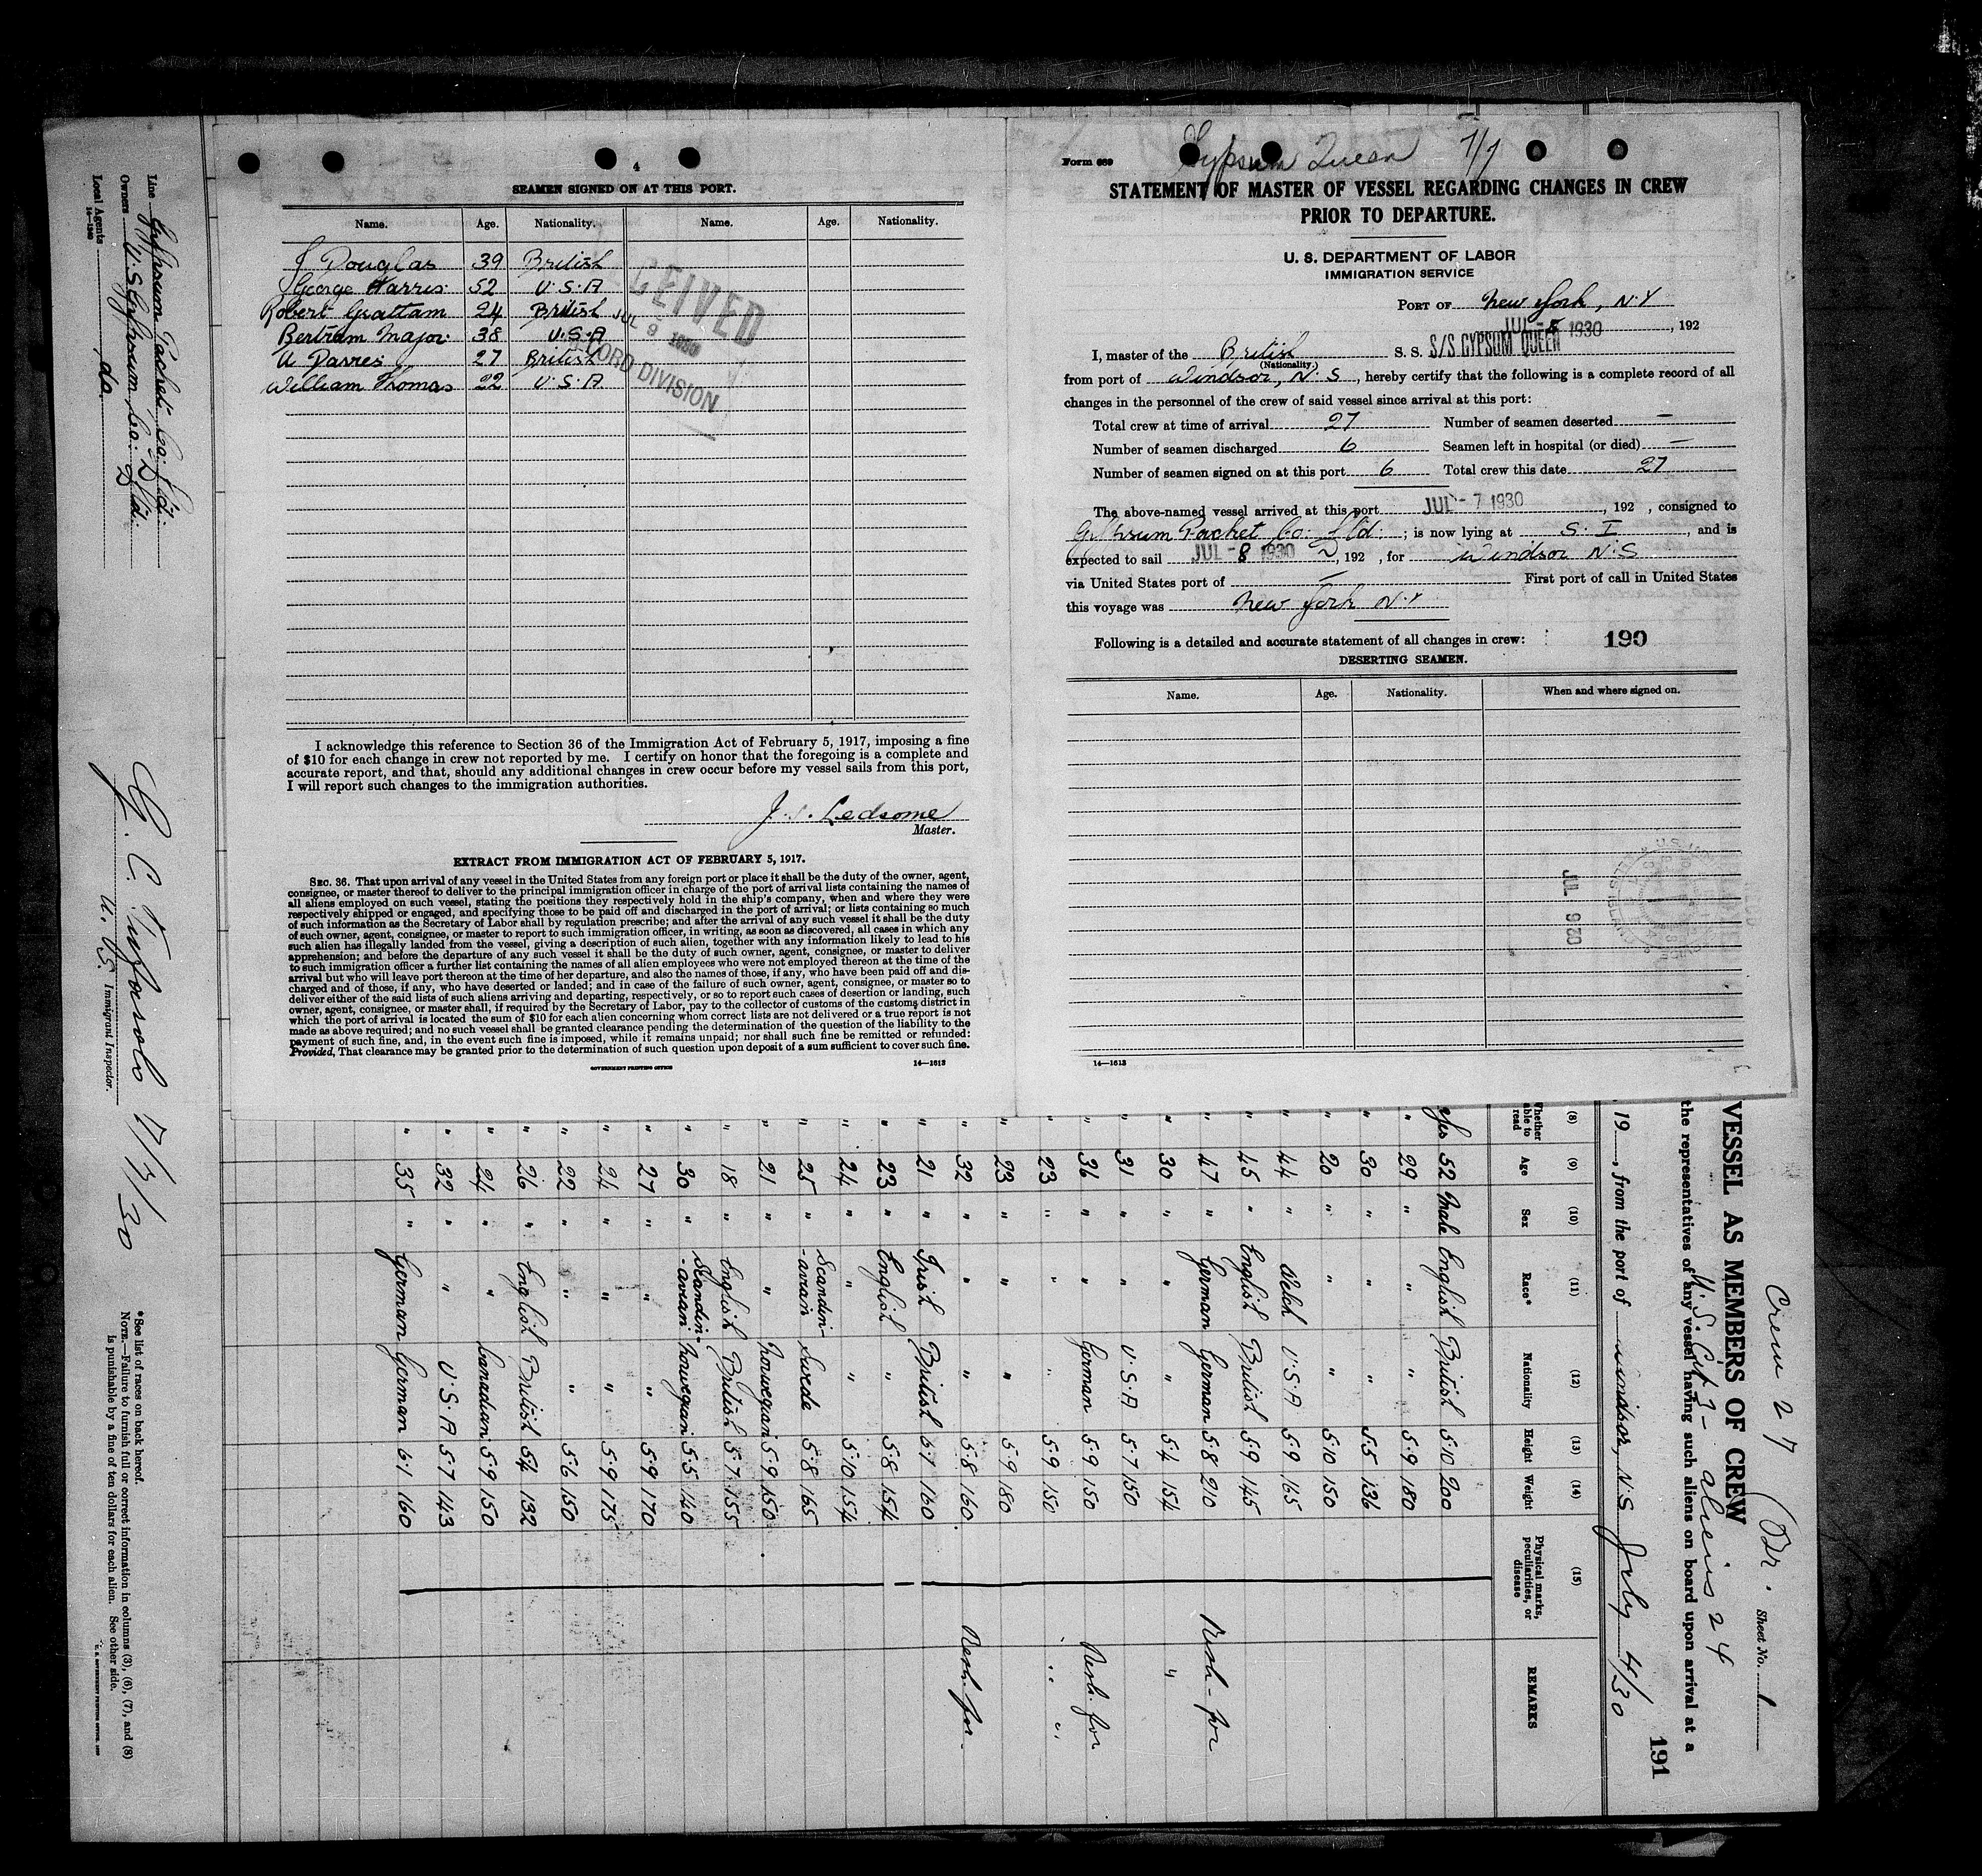 4
SEAMEN SIGNED ON AT THIS PORT.
Name. Age. Nationality. Name. Age. Nationality.
J Douglas 39 British
George Harris 52 U.S.A
Robert Grattam 24 British
Bertram Major 38 U.S.A
27 British
William Thomas 22 U.S.A
CEIVED
JUL 9 1930
CORD DIVISION
I acknowledge this reference to Section 36 of the Immigration Act of February 5, 1917, imposing a fine
of $10 for each change in crew not reported by me. I certify on honor that the foregoing is a complete and
accurate report, and that, should any additional changes in crew occur before my vessel sails from this port,
I will report such changes to the immigration authorities.
J. S. Ledsome
Master.
EXTRACT FROM IMMIGRATION ACT OF FEBRUARY 5, 1917.
SEC. 36. That upon arrival of any vessel in the United States from any foreign port or place it shall be the duty of the owner, agent,
consignee, or master thereof to deliver to the principal immigration officer in charge of the port of arrival lists containing the names of
all aliens employed on such vessel, stating the positions they respectively hold in the ship's company, when and where they were
respectively shipped or engaged, and specifying those to be paid off and discharged in the port of arrival; or lists containing so much
of such information as the Secretary of Labor shall by regulation prescribe; and after the arrival of any such vessel it shall be the duty
of such owner, agent, consignee, or master to report to such immigration officer, in writing, as soon as discovered, all cases in which any
such alien has illegally landed from the vessel, giving a description of such alien, together with any information likely to lead to his
apprehension; and before the departure of any such vessel it shall be the duty of such owner, agent, consignee, or master to deliver
to such immigration officer a further list containing the names of all alien employees who were not employed thereon at the time of the
arrival but who will leave port thereon at the time of her departure, and also the names of those, if any, who have been paid off and dis-
charged and of those, if any, who have deserted or landed; and in case of the failure of such owner, agent, consignee, or master so to
deliver either of the said lists of such aliens arriving and departing, respectively, or so to report such cases of desertion or landing, such
owner, agent, consignee, or master shall, if required by the Secretary of Labor, pay to the collector of customs of the customs district in
which the port of arrival is located the sum of $10 for each alien concerning whom correct lists are not delivered or a true report is not
made as above required; and no such vessel shall be granted clearance pending the determination of the question of the liability to the
payment of such fine, and, in the event such fine is imposed, while it remains unpaid; nor shall such fine be remitted or refunded:
Provided, That clearance may be granted prior to the determination of such question upon deposit of a sum sufficient to cover such fine.
GOVERNMENT PRINTING OFFICE 14—1613
Form 689
Gypsum Queen 7/7
STATEMENT OF MASTER OF VESSEL REGARDING CHANGES IN CREW
PRIOR TO DEPARTURE.
U. S. DEPARTMENT OF LABOR
IMMIGRATION SERVICE
PORT OF New York, N.Y
JUL -8 1930, 192
I, master of the British S. S. S/S GYPSUM QUEEN
(Nationality.)
from port of Windsor, N.S, hereby certify that the following is a complete record of all
changes in the personnel of the crew of said vessel since arrival at this port:
Total crew at time of arrival 27 Number of seamen deserted —
Number of seamen discharged 6 Seamen left in hospital (or died) —
Number of seamen signed on at this port 6 Total crew this date 27
The above-named vessel arrived at this port JUL -7 1930, 192 , consigned to
Gypsum Packet Co. Ltd. ; is now lying at S. I, and is
expected to sail JUL -8 1930, 192 , for Windsor N.S
via United States port of — First port of call in United States
this voyage was New York N.Y
Following is a detailed and accurate statement of all changes in crew: 190
DESERTING SEAMEN.
Name. Age. Nationality. When and where signed on.
JUL 9 30
14—1613
Line Gypsum Packet Co. Ltd.
Owners U.S. Gypsum Co. Ltd.
Local Agents do
14—1240
7/7/30
U. S. Immigrant Inspector.
Crew 27
Sheet No. 1
VESSEL AS MEMBERS OF CREW
U.S. Cit 3 - aliens 24
the representatives of any vessel having such aliens on board upon arrival at a
19 , from the port of Windsor, N.S July 4/30
191
(8) (9) (10) (11) (12) (13) (14) (15)
Whether able to read Age Sex Race* Nationality Height Weight Physical marks, peculiarities, or disease REMARKS
Yes 52 Male English British 5.10 200
" 29 " " " 5.9 180
" 30 " " " 5.5 136
" 20 " " " 5.10 150
" 44 " Welch U.S.A 5.9 165
" 45 " English British 5.9 145
" 47 " German German 5.8 210
" 30 " " " 5.4 154 "
" 31 " " U.S.A 5.7 150
" 36 " " German 5.9 150
" 23 " " " 5.9 150 " "
" 23 " " " 5.9 180
" 32 " " " 5.8 160
" 21 " Irish British 6.7 160
" 23 " English " 5.8 154
" 24 " " " 5.10 154
" 25 " Scandin-avian Swede 5.8 165
" 21 " " Norwegian 5.9 150
" 18 " English British 5.7 155
" 30 " Scandin-avian Norwegian 5.5 140
" 27 " " " 5.9 170
" 24 " " " 5.9 175
" 22 " " " 5.6 150
" 26 " English British 5.4 132
" 24 " " Canadian 5.9 150
" 32 " " U.S.A 5.7 143
" 35 " German German 6.1 160
*See list of races on back hereof.
NOTE.—Failure to furnish full or correct information in columns (3), (6), (7), and (8)
is punishable by a fine of ten dollars for each alien. See other side.